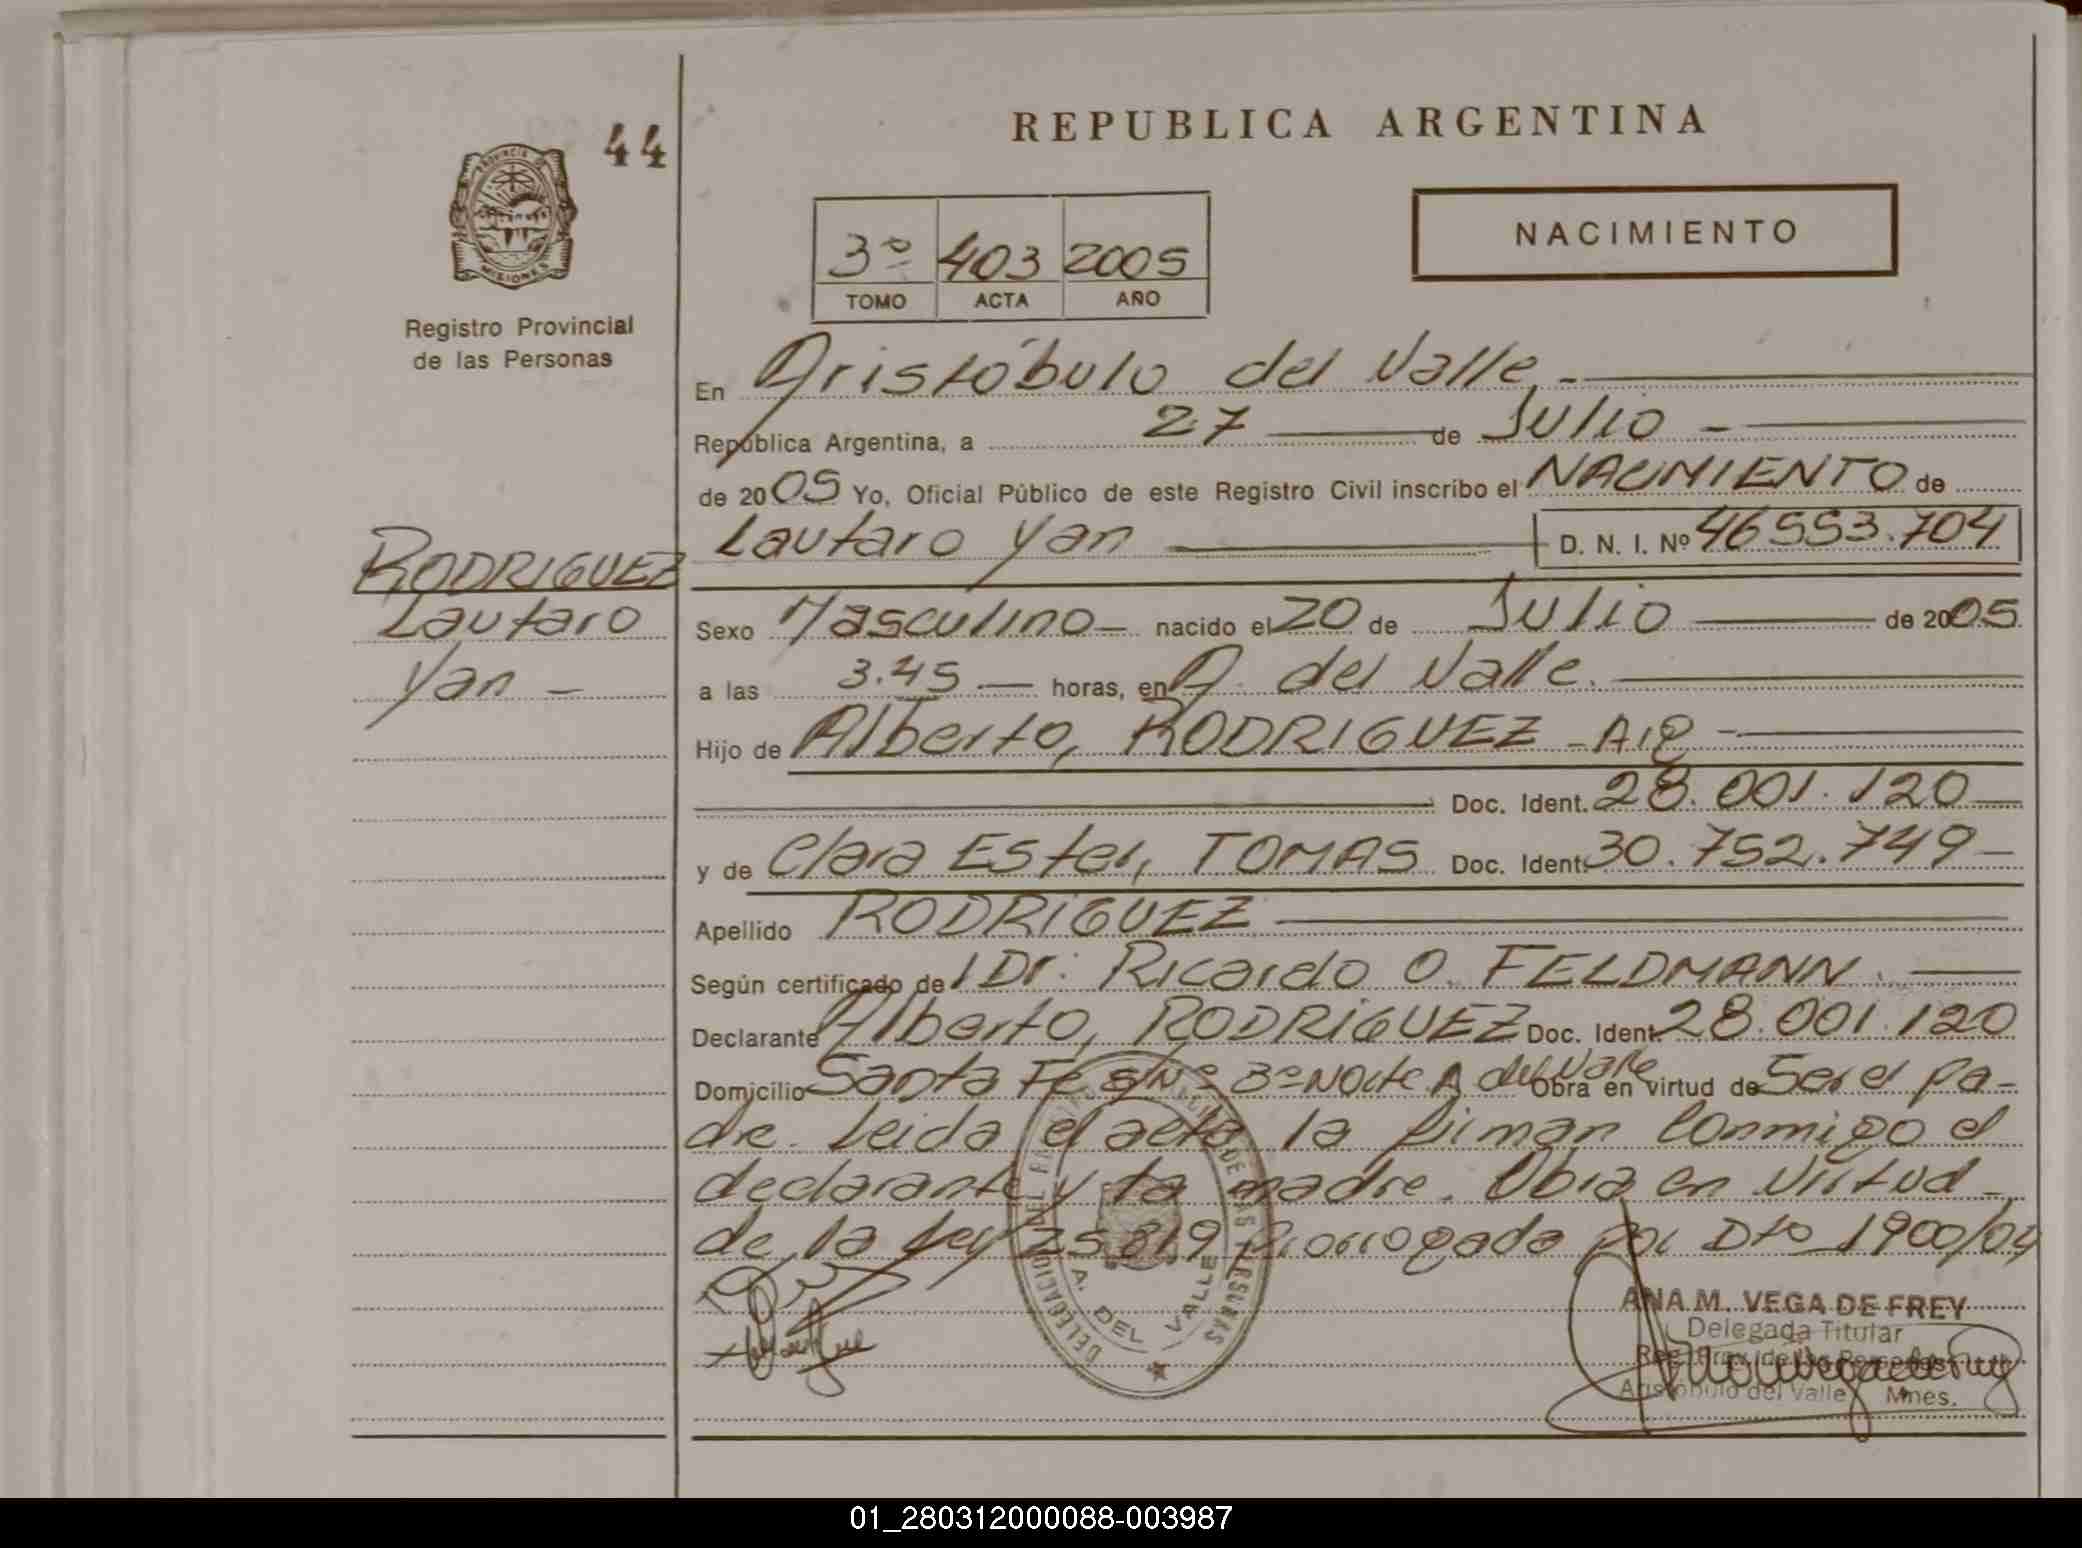 44
PROVINCIA DE
MISIONES
Registro Provincial
de las Personas
RODRIGUEZ
Lautaro
Yan -
REPUBLICA ARGENTINA
NACIMIENTO
3º 403 2005
TOMO ACTA AÑO
En Aristóbulo del Valle.-
República Argentina, a 27 de Julio -
de 2005 Yo, Oficial Público de este Registro Civil inscribo el NACIMIENTO de
Lautaro Yan D. N. I. Nº 46553.704
Sexo Masculino - nacido el 20 de Julio de 2005.
a las 3.45 - horas, en A. del Valle.
Hijo de Alberto, RODRIGUEZ -
Doc. Ident. 28.001.120 -
y de Clara Ester, TOMAS Doc. Ident. 30.752.749 -
Apellido RODRIGUEZ
Según certificado del Dr. Ricardo O. FELDMANN.
Declarante Alberto, RODRIGUEZ Doc. Ident. 28.001.120
Domicilio Santa Fe s/Nº Bº Norte A. del Valle Obra en virtud de Ser el pa-
dre. Leida el acta la firman Conmigo el
declarante y la madre. Obra en Virtud -
de la Ley 25819 Prorrogada por Dto 1900/04
DELEGACION DEL REGISTRO DE LAS PERSONAS
A. DEL VALLE
ANA M. VEGA DE FREY
Delegada Titular
Reg. Prov. de las Personas
Aristóbulo del Valle Mnes.
01_280312000088-003987